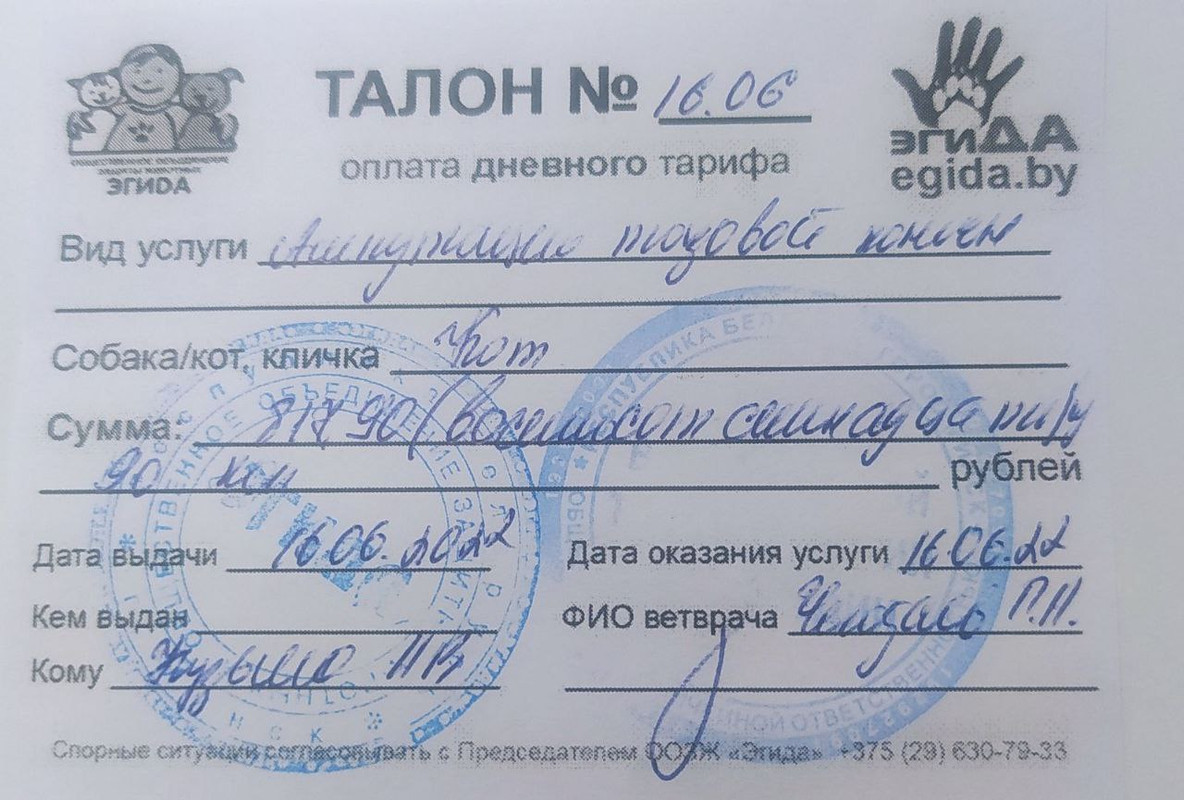 ТАЛОН № 16.06
оплата дневного тарифа
ЭГИДА
эгиДА
egida.by
Вид услуги Ампутация тазовой конечн
Собака/кот, кличка Кот
Сумма: 817 90 (восемьсот семнадцать ру
90 коп рублей
Дата выдачи 16.06.2022
Дата оказания услуги 16.06.22
Кем выдан
ФИО ветврача П.Н.
Кому Кузьмо НВ
Спорные ситуации согласовывать с Председателем ООЗЖ «Эгида» +375 (29) 630-79-33